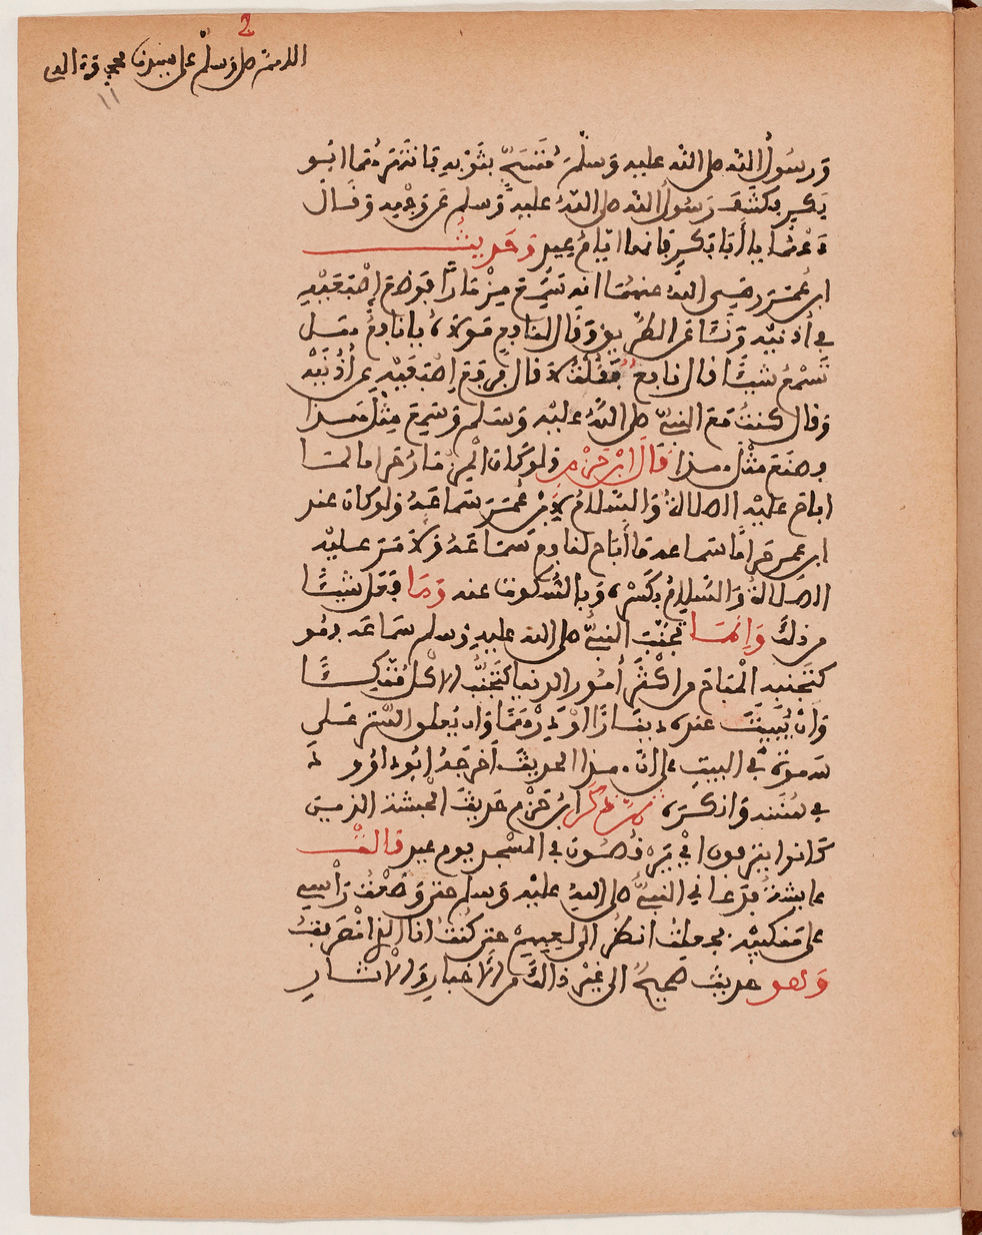 2
اللهم صل وسلم على سيدنا محمد قرة العين
١١
ورسول الله صلى الله عليه وسلم متسج بثوبه فانتهرهما ابو
بكر فكشف رسول الله صلى الله عليه وسلم عن وجهه وقال
دعهما يا أبا بكر فانها ايام عيد وحديث
ابن عمر رضي الله عنهما انه سمع مزمارا فوضع إصبعيه
في أذنيه ونأى عن الطريق وقال لنافع مولاه يا نافع هل
تسمع شيئا قال نافع فقلت لا قال فرفع إصبعيه عن أذنيه
وقال كنت مع النبي صلى الله عليه وسلم وسمع مثل هذا
وصنع مثل هذا قال ابن حزم فلو كان المزمار حراما لما
اباح عليه الصلاة والسلام لابن عمر سماعه ولو كان عند
ابن عمر حراما سماعه ما أباح لنافع سماعه ولامر عليه
الصلاة والسلام بكسره وبالسكوت عنه وما فعل شيئا
من ذلك وإنما تجنب النبي صلى الله عليه وسلم سماعه فهو
كتجنبه المباح من اكثر أمور الدنيا كتجنب الاكل متكئا
وان يبيت عنده دينارا او درهما وان يعلو الستر على
سهوة في البيت على ان هذا الحديث أخرجه ابو داوود
في سننه وانكره ثم ذكر ابن حزم حديث الحبشة الذين
كانوا يزفون اي يرقصون في المسجد يوم عيد قالت
عايشة فدعاني النبي صلى الله عليه وسلم حتى وضعت رأسي
على منكبيه فجعلت انظر الى لعبهم حتى كنت انا التي انصرفت
وهو حديث صحيح الى غير ذالك من الأخبار والاثار